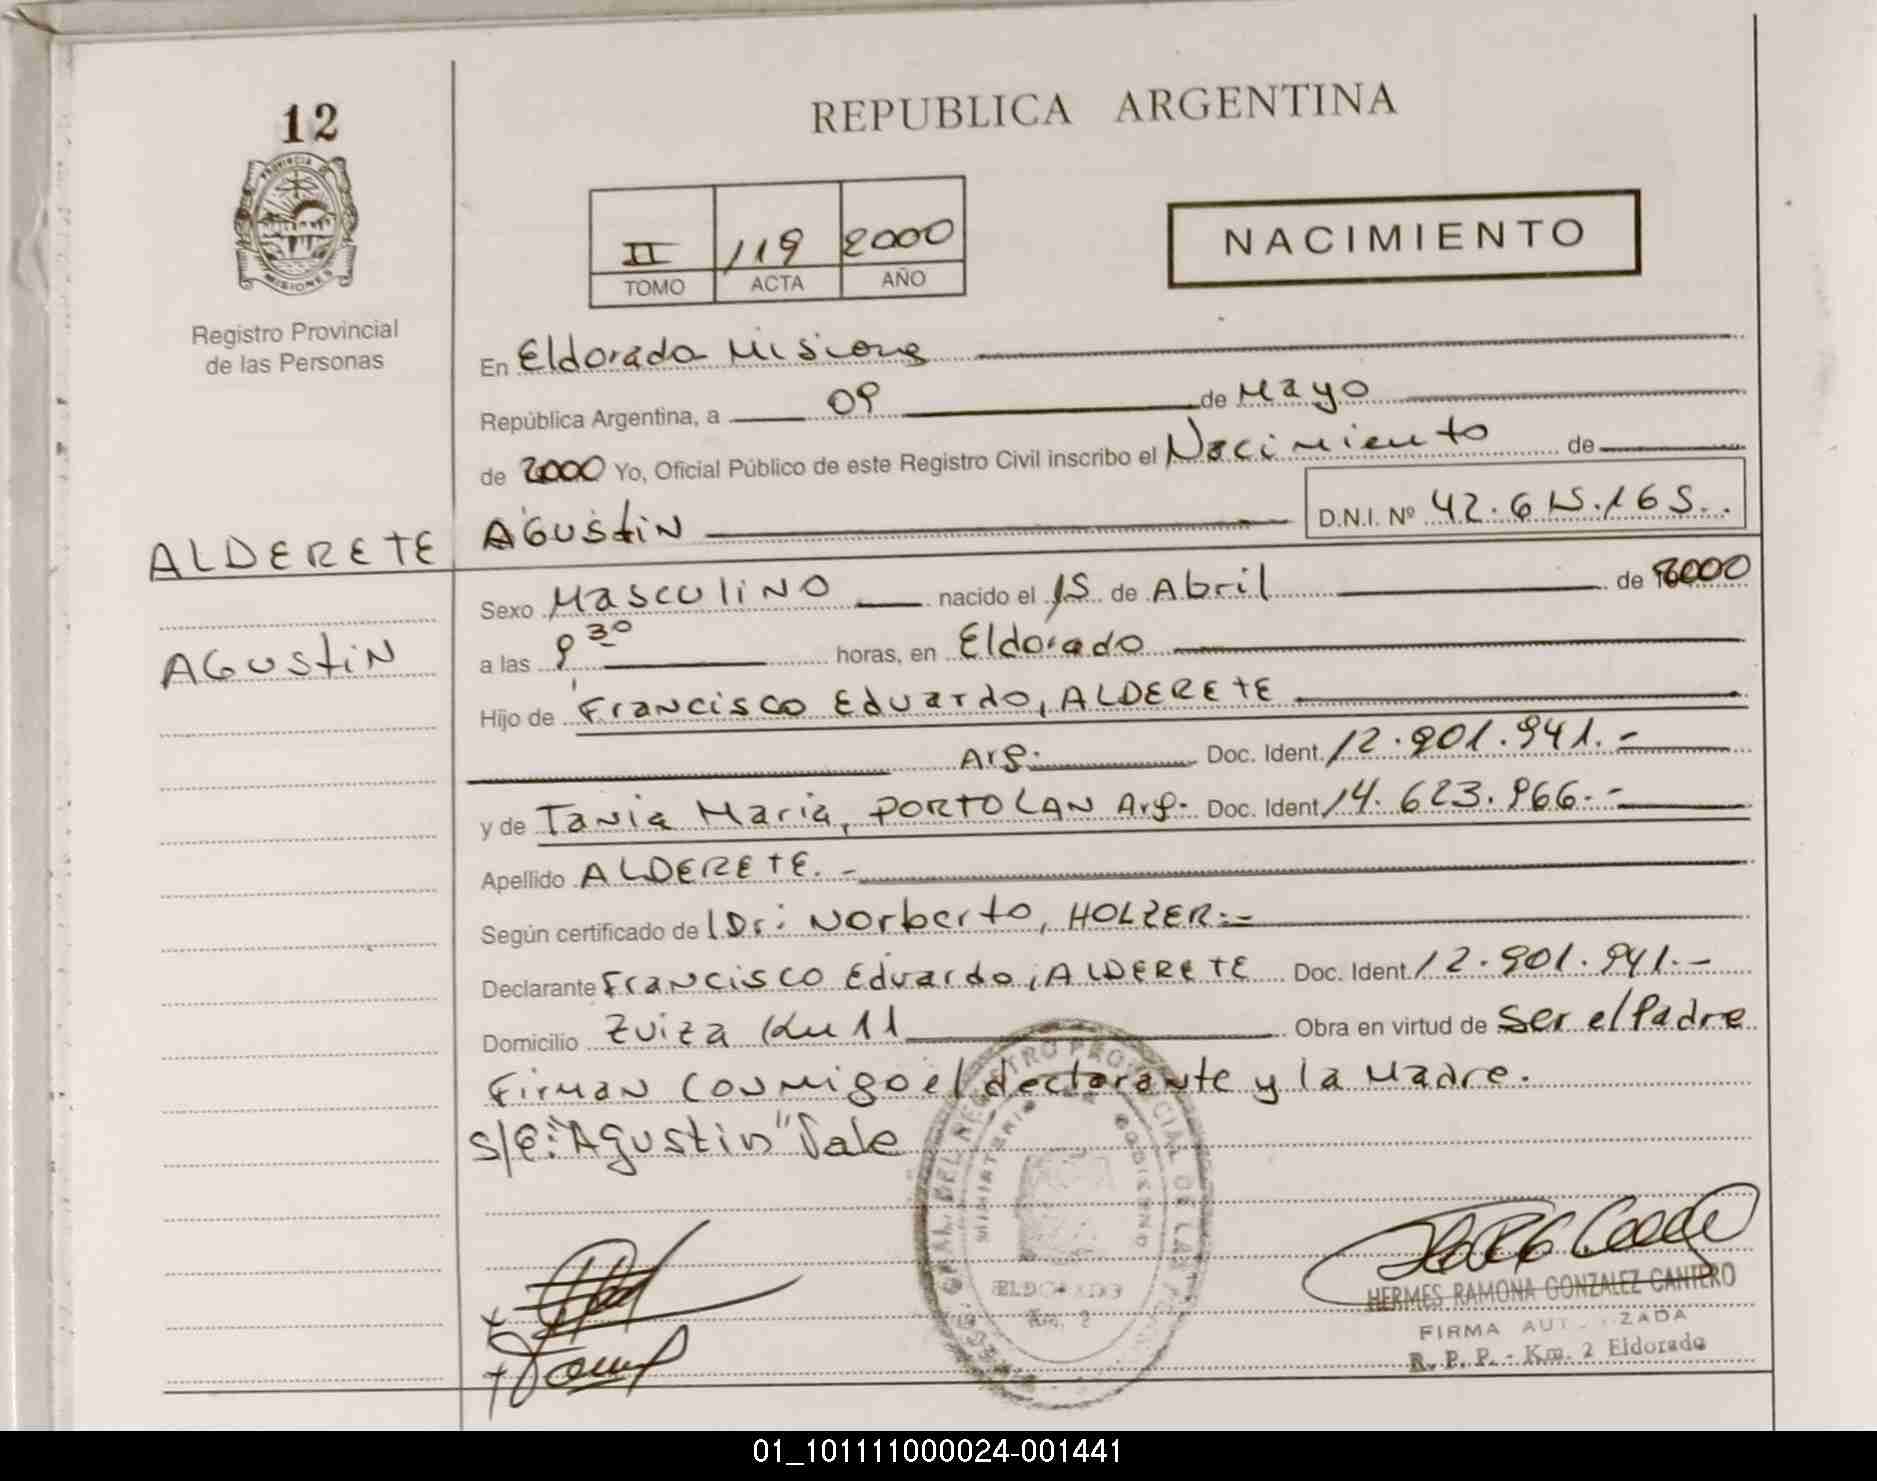 12
PROVINCIA
MISIONES
Registro Provincial
de las Personas
ALDERETE
AGUSTIN
REPUBLICA ARGENTINA
II 119 2000
TOMO ACTA AÑO
NACIMIENTO
En Eldorado Misiones
República Argentina, a 09 de Mayo
de 2000 Yo, Oficial Público de este Registro Civil inscribo el Nacimiento de
AGUSTIN D.N.I. Nº 42.615.165.
Sexo Masculino nacido el 15 de Abril de 2000
a las 9 30 horas, en Eldorado
Hijo de Francisco Eduardo, ALDERETE
Arg. Doc. Ident. 12.901.941.-
y de Tania Maria, PORTOLAN Arg. Doc. Ident 14.623.966.-
Apellido ALDERETE.-
Según certificado de Dr: Norberto, HOLZER:-
Declarante Francisco Eduardo, ALDERETE Doc. Ident. 12.901.941.-
Domicilio Zuiza Km 11 Obra en virtud de Ser el Padre
Firman conmigo el declarante y la Madre.
S/E: "Agustin" Vale
REGISTRO PROVINCIAL DE LAS
MINISTERIO DE GOBIERNO
ELDORADO
Km. 2
HERMES RAMONA GONZALEZ CANTERO
FIRMA AUTORIZADA
R. P. P. - Km. 2 Eldorado
01_101111000024-001441